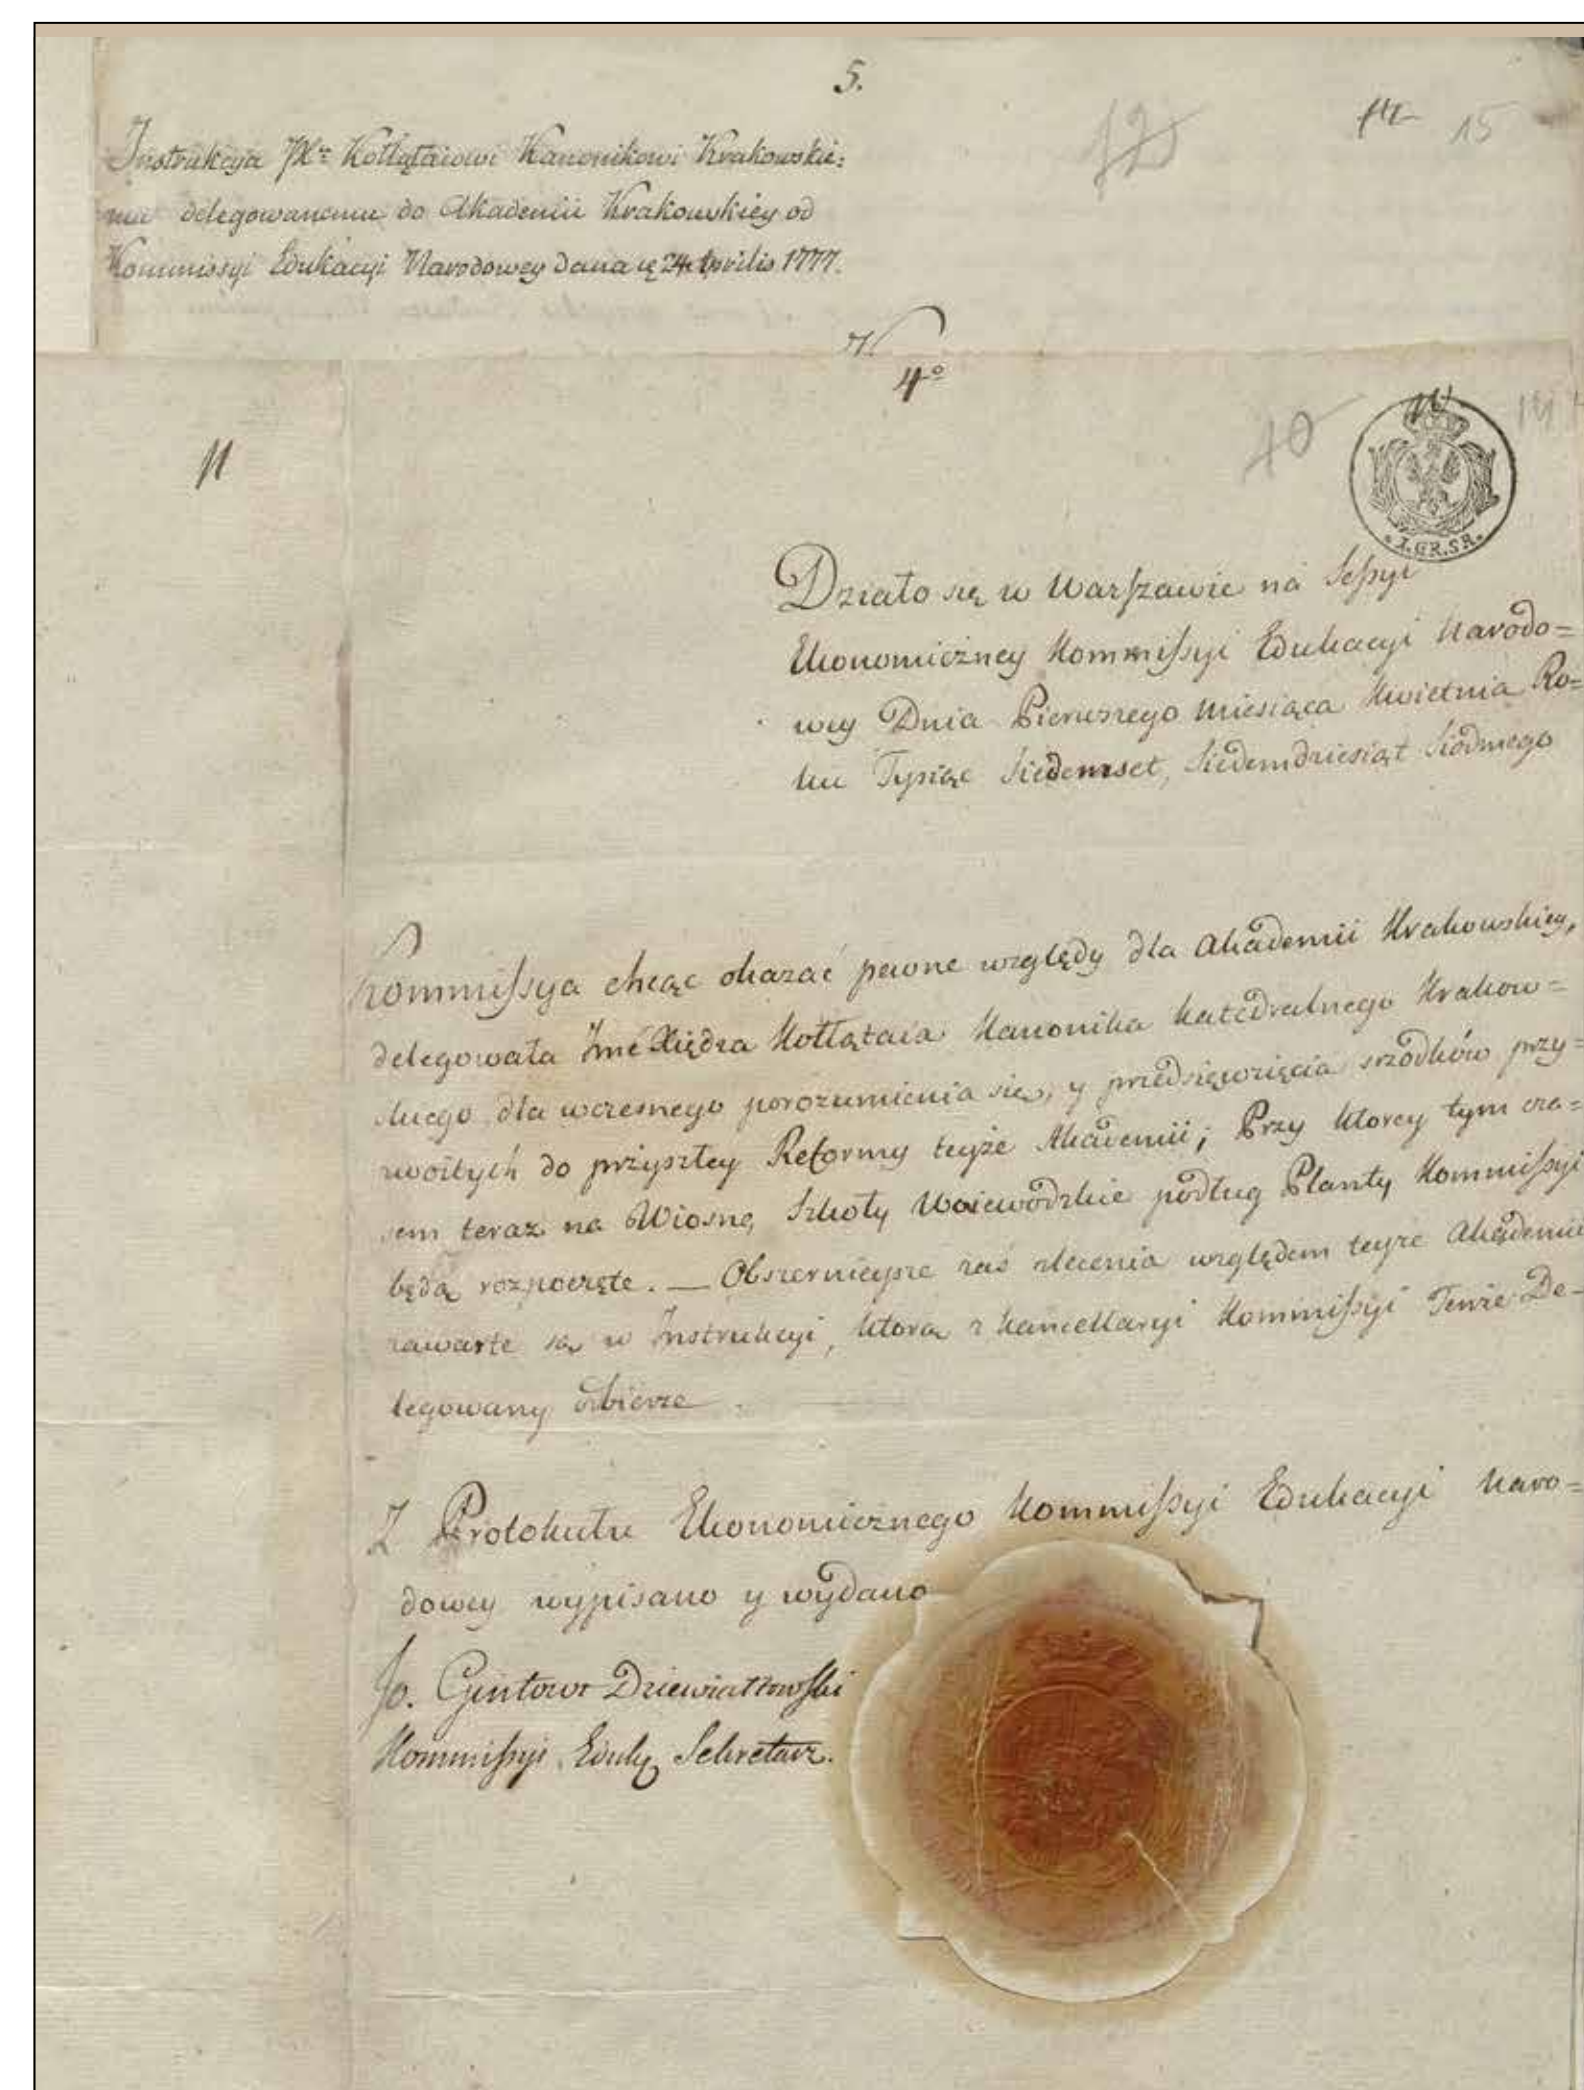 5.
12
14 15
Instrukcya JX. Kołłątaiowi Kanonikowi Krakowskie:
mu delegowanemu do Akademii Krakowskiey od
Kommissyi Edukacyi Narodowey dana 24 Aprilis 1777.
4º
40
11
1.GR.SR.
Działo się w Warſzawie na Seſsyi
Ekonomiczney Kommiſsyi Edukacyi Narodo=
wey Dnia Pierwszego Miesiąca Kwietnia Ro=
ku Tysiąc Siedemset, Siedemdziesiąt Siódmego
Kommiſsya chcąc okazać pewne względy dla Akademii Krakowskiey,
delegowała Jmć Xiędza Kołłątaia Kanonika Katedralnego Krakow=
skiego, dla wczesnego porozumienia się, y przedsięwzięcia srzodków przy=
zwoitych do przyszłey Reformy teyże Akademii; Przy ktorey tym cza=
sem teraz na Wiosnę, Szkoły Woiewodzkie podług Planty Kommiſsyi
będą rozpoczęte. — Obszernieysze zaś zlecenia względem teyże Akademii
zawarte są w Instrukcyi, ktorą z Kancellaryi Kommiſsyi Tenże De-
legowany odbierze
Z Protokułu Ekonomicznego Kommiſsyi Edukacyi Naro=
dowey wypisano y wydano
Jo. Gintowt Dziewiałtowſki
Kommiſsyi Eduk. Sekretarz.